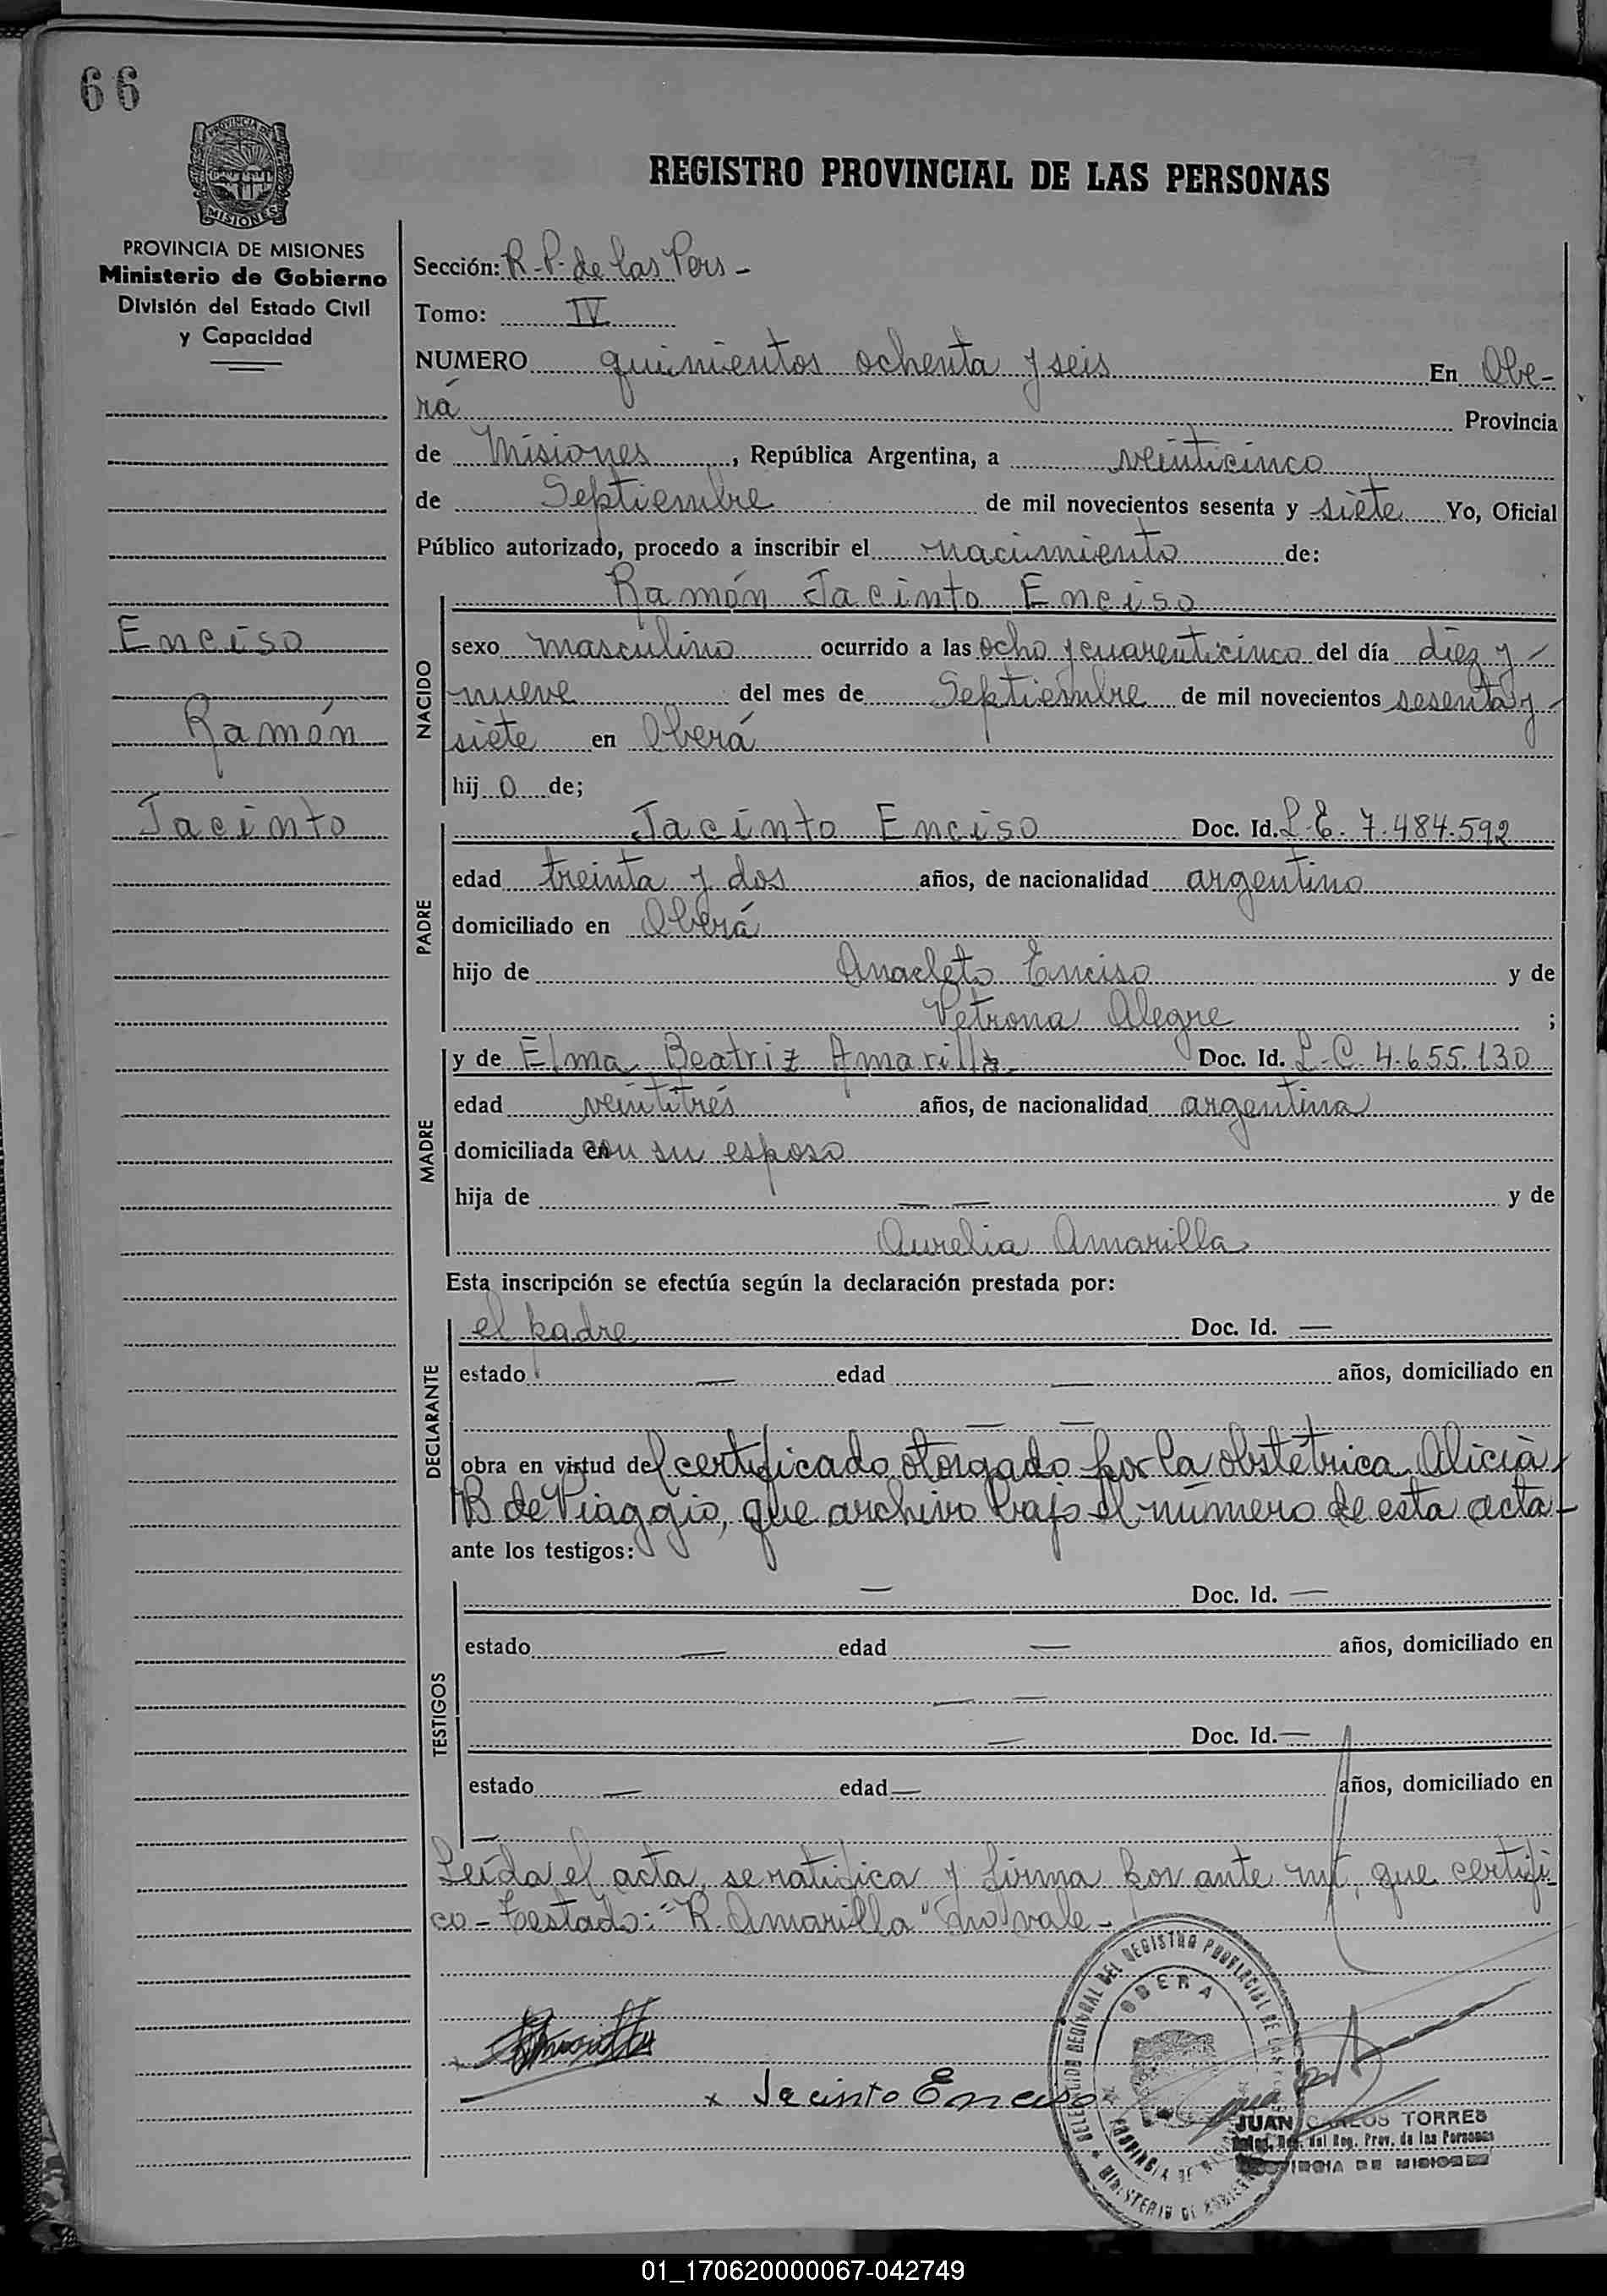 66
PROVINCIA DE
MISIONES
REGISTRO PROVINCIAL DE LAS PERSONAS
PROVINCIA DE MISIONES
Ministerio de Gobierno
División del Estado Civil
y Capacidad
Enciso
Ramón
Jacinto
Sección: R.P. de las Pers -
Tomo: IV
NUMERO quinientos ochenta y seis En Obe-
rá Provincia
de Misiones, República Argentina, a veinticinco
de Septiembre de mil novecientos sesenta y siete Yo, Oficial
Público autorizado, procedo a inscribir el nacimiento de:
Ramón Jacinto Enciso
NACIDO
sexo masculino ocurrido a las ocho y cuarenticinco del día diez y -
nueve del mes de Septiembre de mil novecientos sesenta y -
siete en Oberá
hij o de;
PADRE
Jacinto Enciso Doc. Id. L.E. 7.484.592
edad treinta y dos años, de nacionalidad argentino
domiciliado en Oberá
hijo de Anacleto Enciso y de
Petrona Alegre ;
MADRE
y de Elma Beatriz Amarilla Doc. Id. L.C. 4.655.130
edad veintitrés años, de nacionalidad argentina
domiciliada en con su esposo
hija de — — y de
Aurelia Amarilla
Esta inscripción se efectúa según la declaración prestada por:
DECLARANTE
el padre Doc. Id. —
estado — edad — años, domiciliado en
— —
obra en virtud del certificado otorgado por la obstétrica Alicia
B de Piaggio, que archivo bajo el número de esta acta -
ante los testigos:
TESTIGOS
— Doc. Id. —
estado — edad — años, domiciliado en
— —
— Doc. Id. —
estado — edad — años, domiciliado en
—
Leída el acta, se ratifica y firma por ante mí, que certifi
co - Testado: "R. Amarilla" no vale -
x Jacinto Enciso
DELEGACION REGIONAL DEL REGISTRO PROVINCIAL DE LAS
OBERA
PROVINCIA DE
MINISTERIO DE GOBIERNO
JUAN CARLOS TORRES
Deleg. Reg. del Reg. Prov. de las Personas
PROVINCIA DE MISIONES
01_170620000067-042749